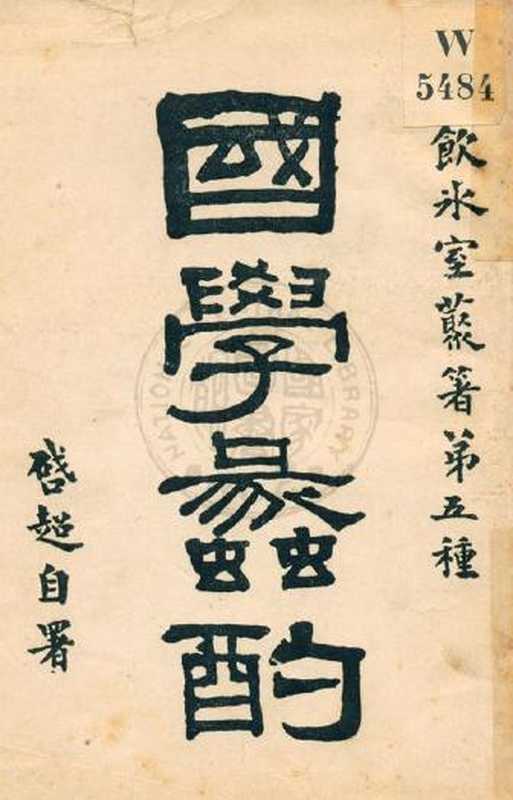 W
5484
飲氷室叢箸第五種
國學蠡酌
啓超自署